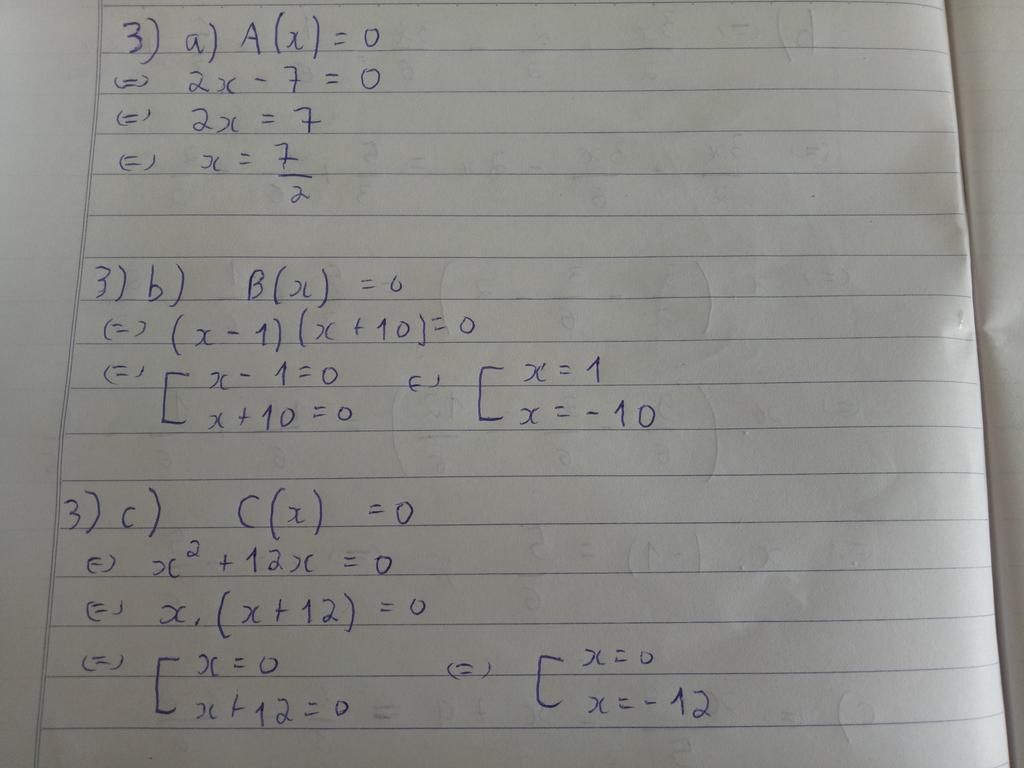 3) a) A(x) = 0
⇔ 2x - 7 = 0
⇔ 2x = 7
⇔ x = 7/2
3) b) B(x) = 0
⇔ (x - 1)(x + 10) = 0
⇔ [ x - 1 = 0 ⇔ [ x = 1
x + 10 = 0 x = -10
3) c) C(x) = 0
⇔ x² + 12x = 0
⇔ x. (x + 12) = 0
⇔ [ x = 0 ⇔ [ x = 0
x + 12 = 0 x = -12